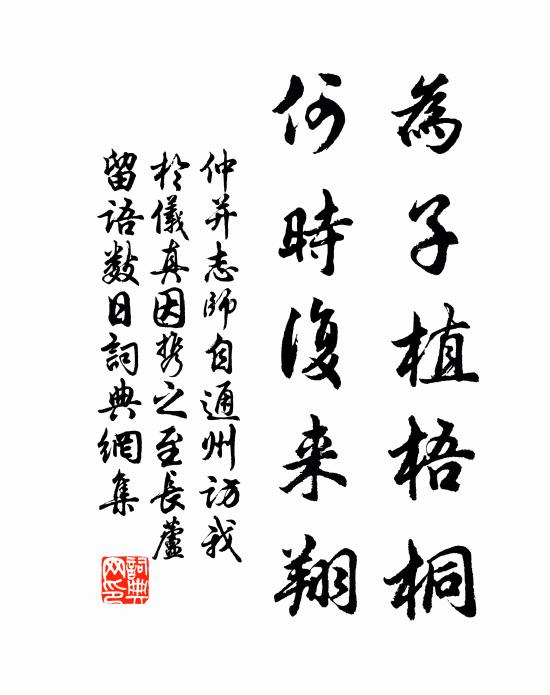 為子植梧桐
何時復来翔
仲并志師自通州訪我
於儀真因携之至長蘆
留语數日詞典網集
詞典网印